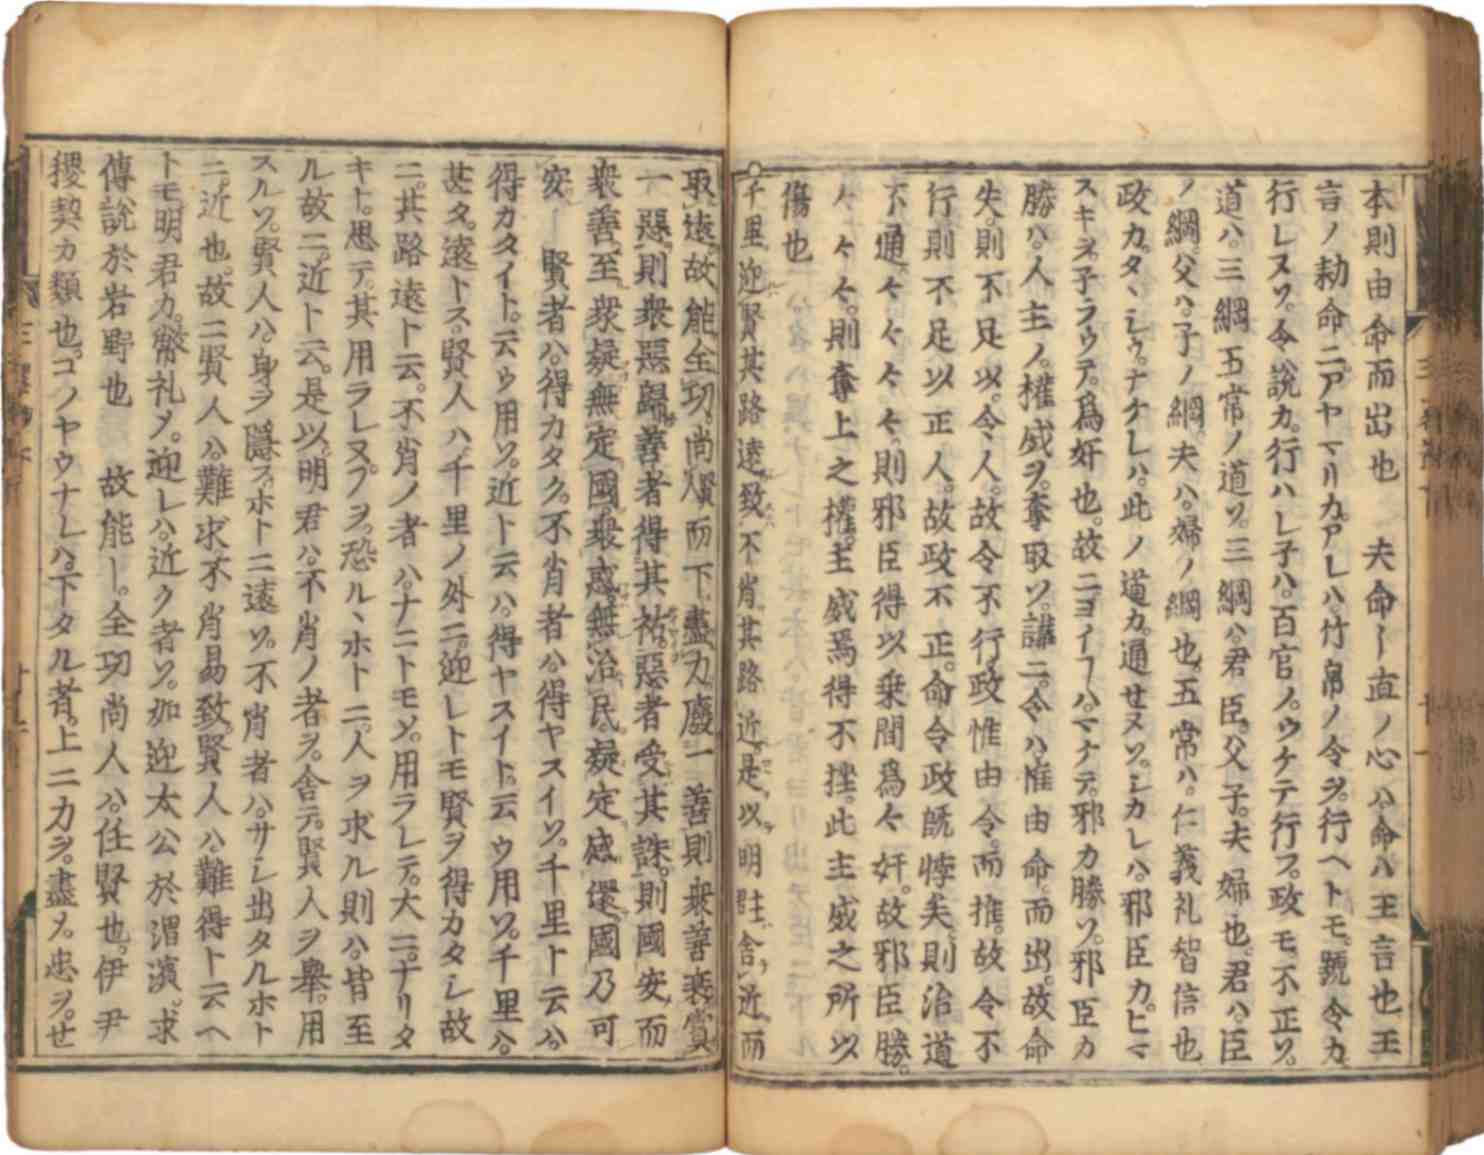 本則由命而出也　夫命ー直ノ心ハ命ハ王言也王
言ノ勅命ニアヤマリカアレハ竹帛ノ令ヲ行ヘトモ號令カ
行レヌソ令說カ行ハレ子ハ百官ノウケテ行フ政モ不正ソ
道ハ三綱五常ノ道ソ三綱ハ君臣父子夫婦也君ハ臣
ノ綱父ハ子ノ綱夫ハ婦ノ綱也五常ハ仁義礼智信也
政カタヽシウナケレハ此ノ道カ通セヌソシカレハ邪臣カヒマ
スキヲ子ラウテ爲奸也故ニヨイヿハマナテ邪カ勝ソ邪臣カ
勝ハ人主ノ權威ヲ奪取ソ講ニ令ハ惟由命而出故命
失則不足以令人故令不行政惟由令而推故令不
行則不足以正人故政不正命令政旣悖矣則治道
不通々々々々則邪臣得以乗間爲々奸故邪臣勝
々々々則奪上之權主威焉得不挫此主威之所以
傷也
千里迎賢其路遠致不肖其路近是以明主舍近而
取遠故能全功尚人賢而下盡力廢一善則衆善衰賞
一惡則衆惡歸善者得其祐惡者受其誅則國安而
衆善至衆疑無定國衆惑無治民疑定惑還國乃可
安ー　賢者ハ得カタク不肖者ハ得ヤスイソ千里ト云ハ
得カタイト云ウ用ソ近ト云ハ得ヤスイト云ウ用ソ千里ハ
甚タ遠トス賢人ハ千里ノ外ニ迎レトモ賢ヲ得カタシ故
ニ其路遠ト云不肖ノ者ハナニトモソ用ラレテ大ニナリタ
キト思テ其用ラレヌヿヲ恐ルヽホトニ人ヲ求ル則ハ皆至
ル故ニ近ト云是以明君ハ不肖ノ者ヲ舍テ賢人ヲ擧用
スルソ賢人ハ身ヲ隱スホトニ遠ソ不肖者ハサシ出タルホト
ニ近也故ニ賢人ハ難求不肖易致賢人ハ難得ト云ヘ
トモ明君カ幣礼メ迎レハ近ク者ソ如迎太公於渭濱求
傳說於岩野也　故能ー全功尚人ハ任賢也伊尹
稷契カ類也コノヤウナレハ下タル者上ニ力ヲ盡メ忠ヲせ